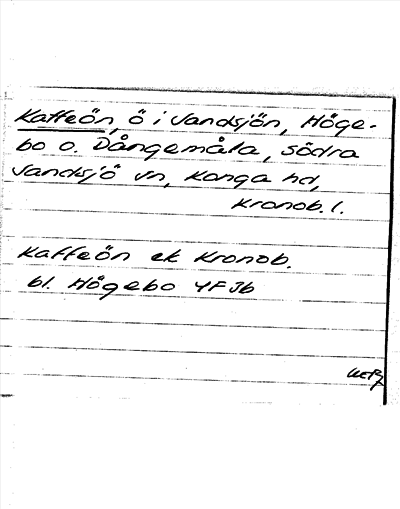 Kaffeön, ö i Sandsjön, Höge-
bo o. Dångemåla, södra
Sandsjö sn, Konga hd,
Kronob. l.
Kaffeön ek Kronob.
bl. Högebo 4F Jb